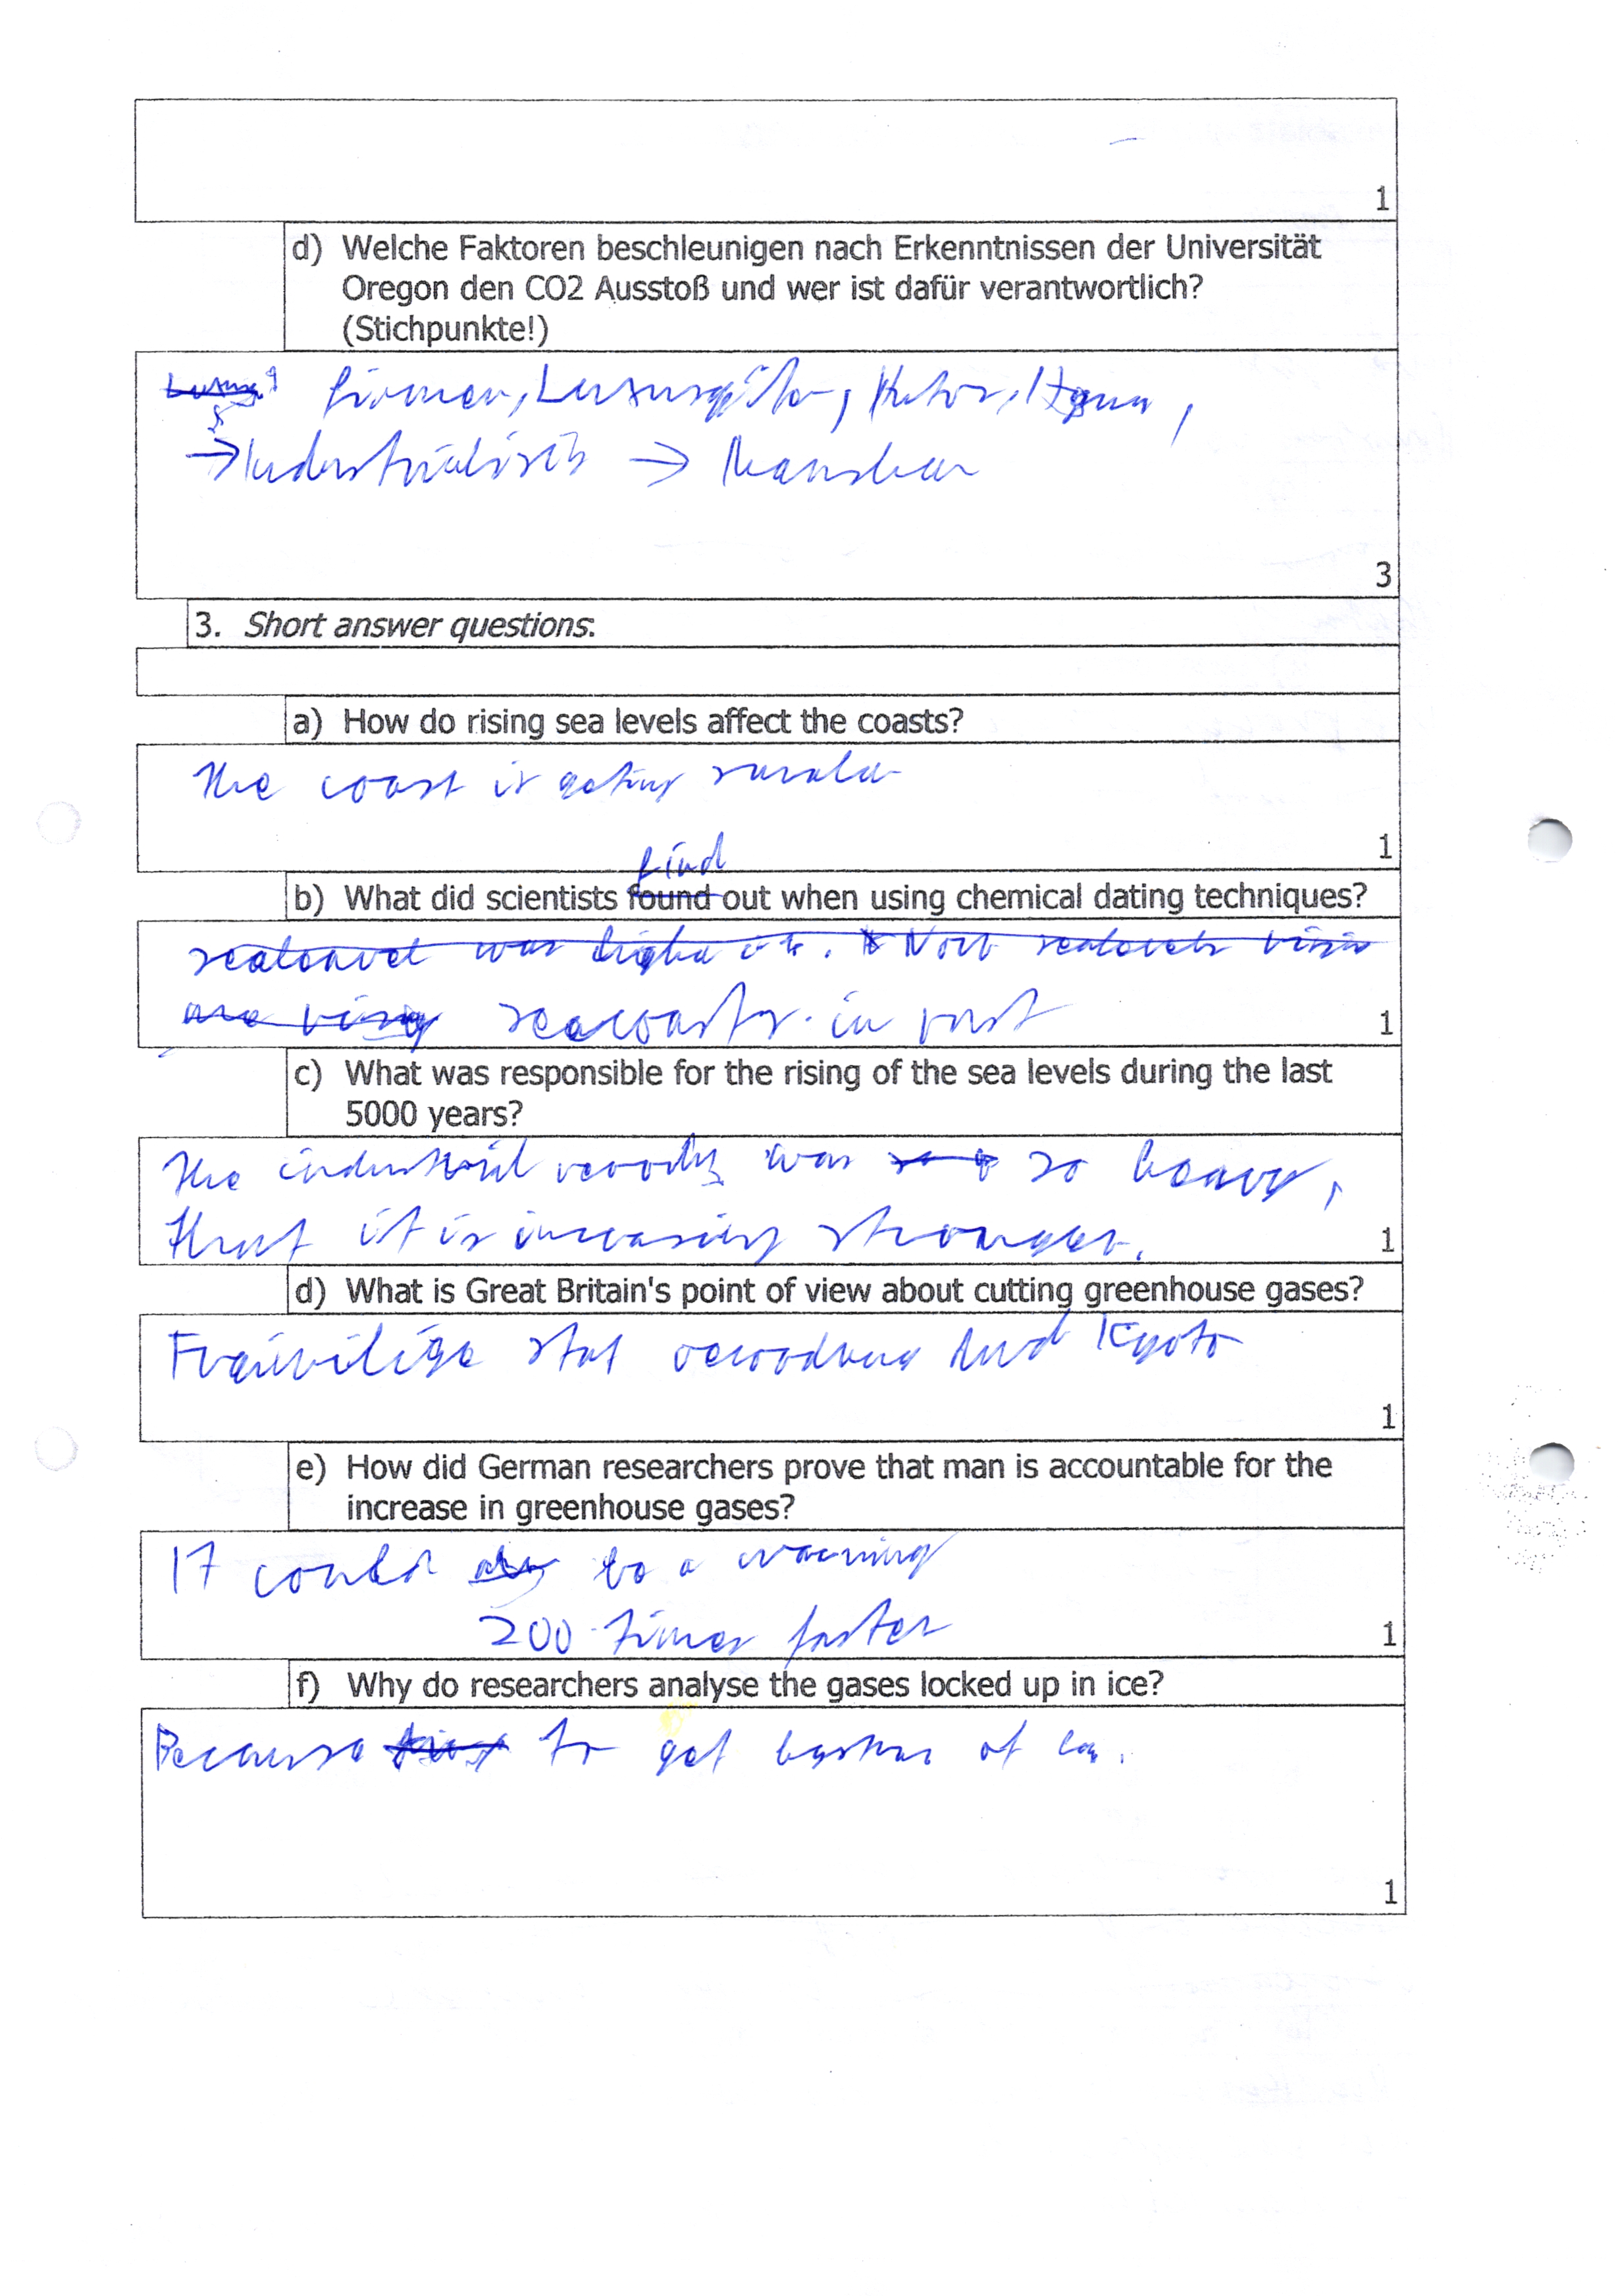 1
d) Welche Faktoren beschleunigen nach Erkenntnissen der Universität
Oregon den CO2 Ausstoß und wer ist dafür verantwortlich?
(Stichpunkte!)
Firmen, Luxusgüter, Autos,
→ Industrialisis →
3
3. Short answer questions:
a) How do rising sea levels affect the coasts?
The coast is geting smaler
1
find
b) What did scientists found out when using chemical dating techniques?
sealeavel was higher. Now sealevels
are rising seacoasts in past
1
c) What was responsible for the rising of the sea levels during the last
5000 years?
The industrial was so heavy,
that it is increasing stronger.
1
d) What is Great Britain's point of view about cutting greenhouse gases?
Fraiwilige statt Kyoto
1
e) How did German researchers prove that man is accountable for the
increase in greenhouse gases?
It could be a warming
200 times faster
1
f) Why do researchers analyse the gases locked up in ice?
Because to get of
1